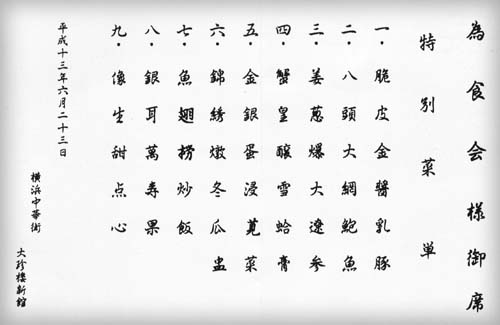 為食会様御席
特別菜単
一・脆皮金醬乳豚
二・八頭大網鮑魚
三・姜葱爆大遼参
四・蟹皇釀雪蛤膏
五・金銀蛋浸莧菜
六・錦綉燉冬瓜盅
七・魚翅撈炒飯
八・銀耳萬寿果
九・像生甜点心
平成十三年六月二十三日
横浜中華街
大珍樓新館